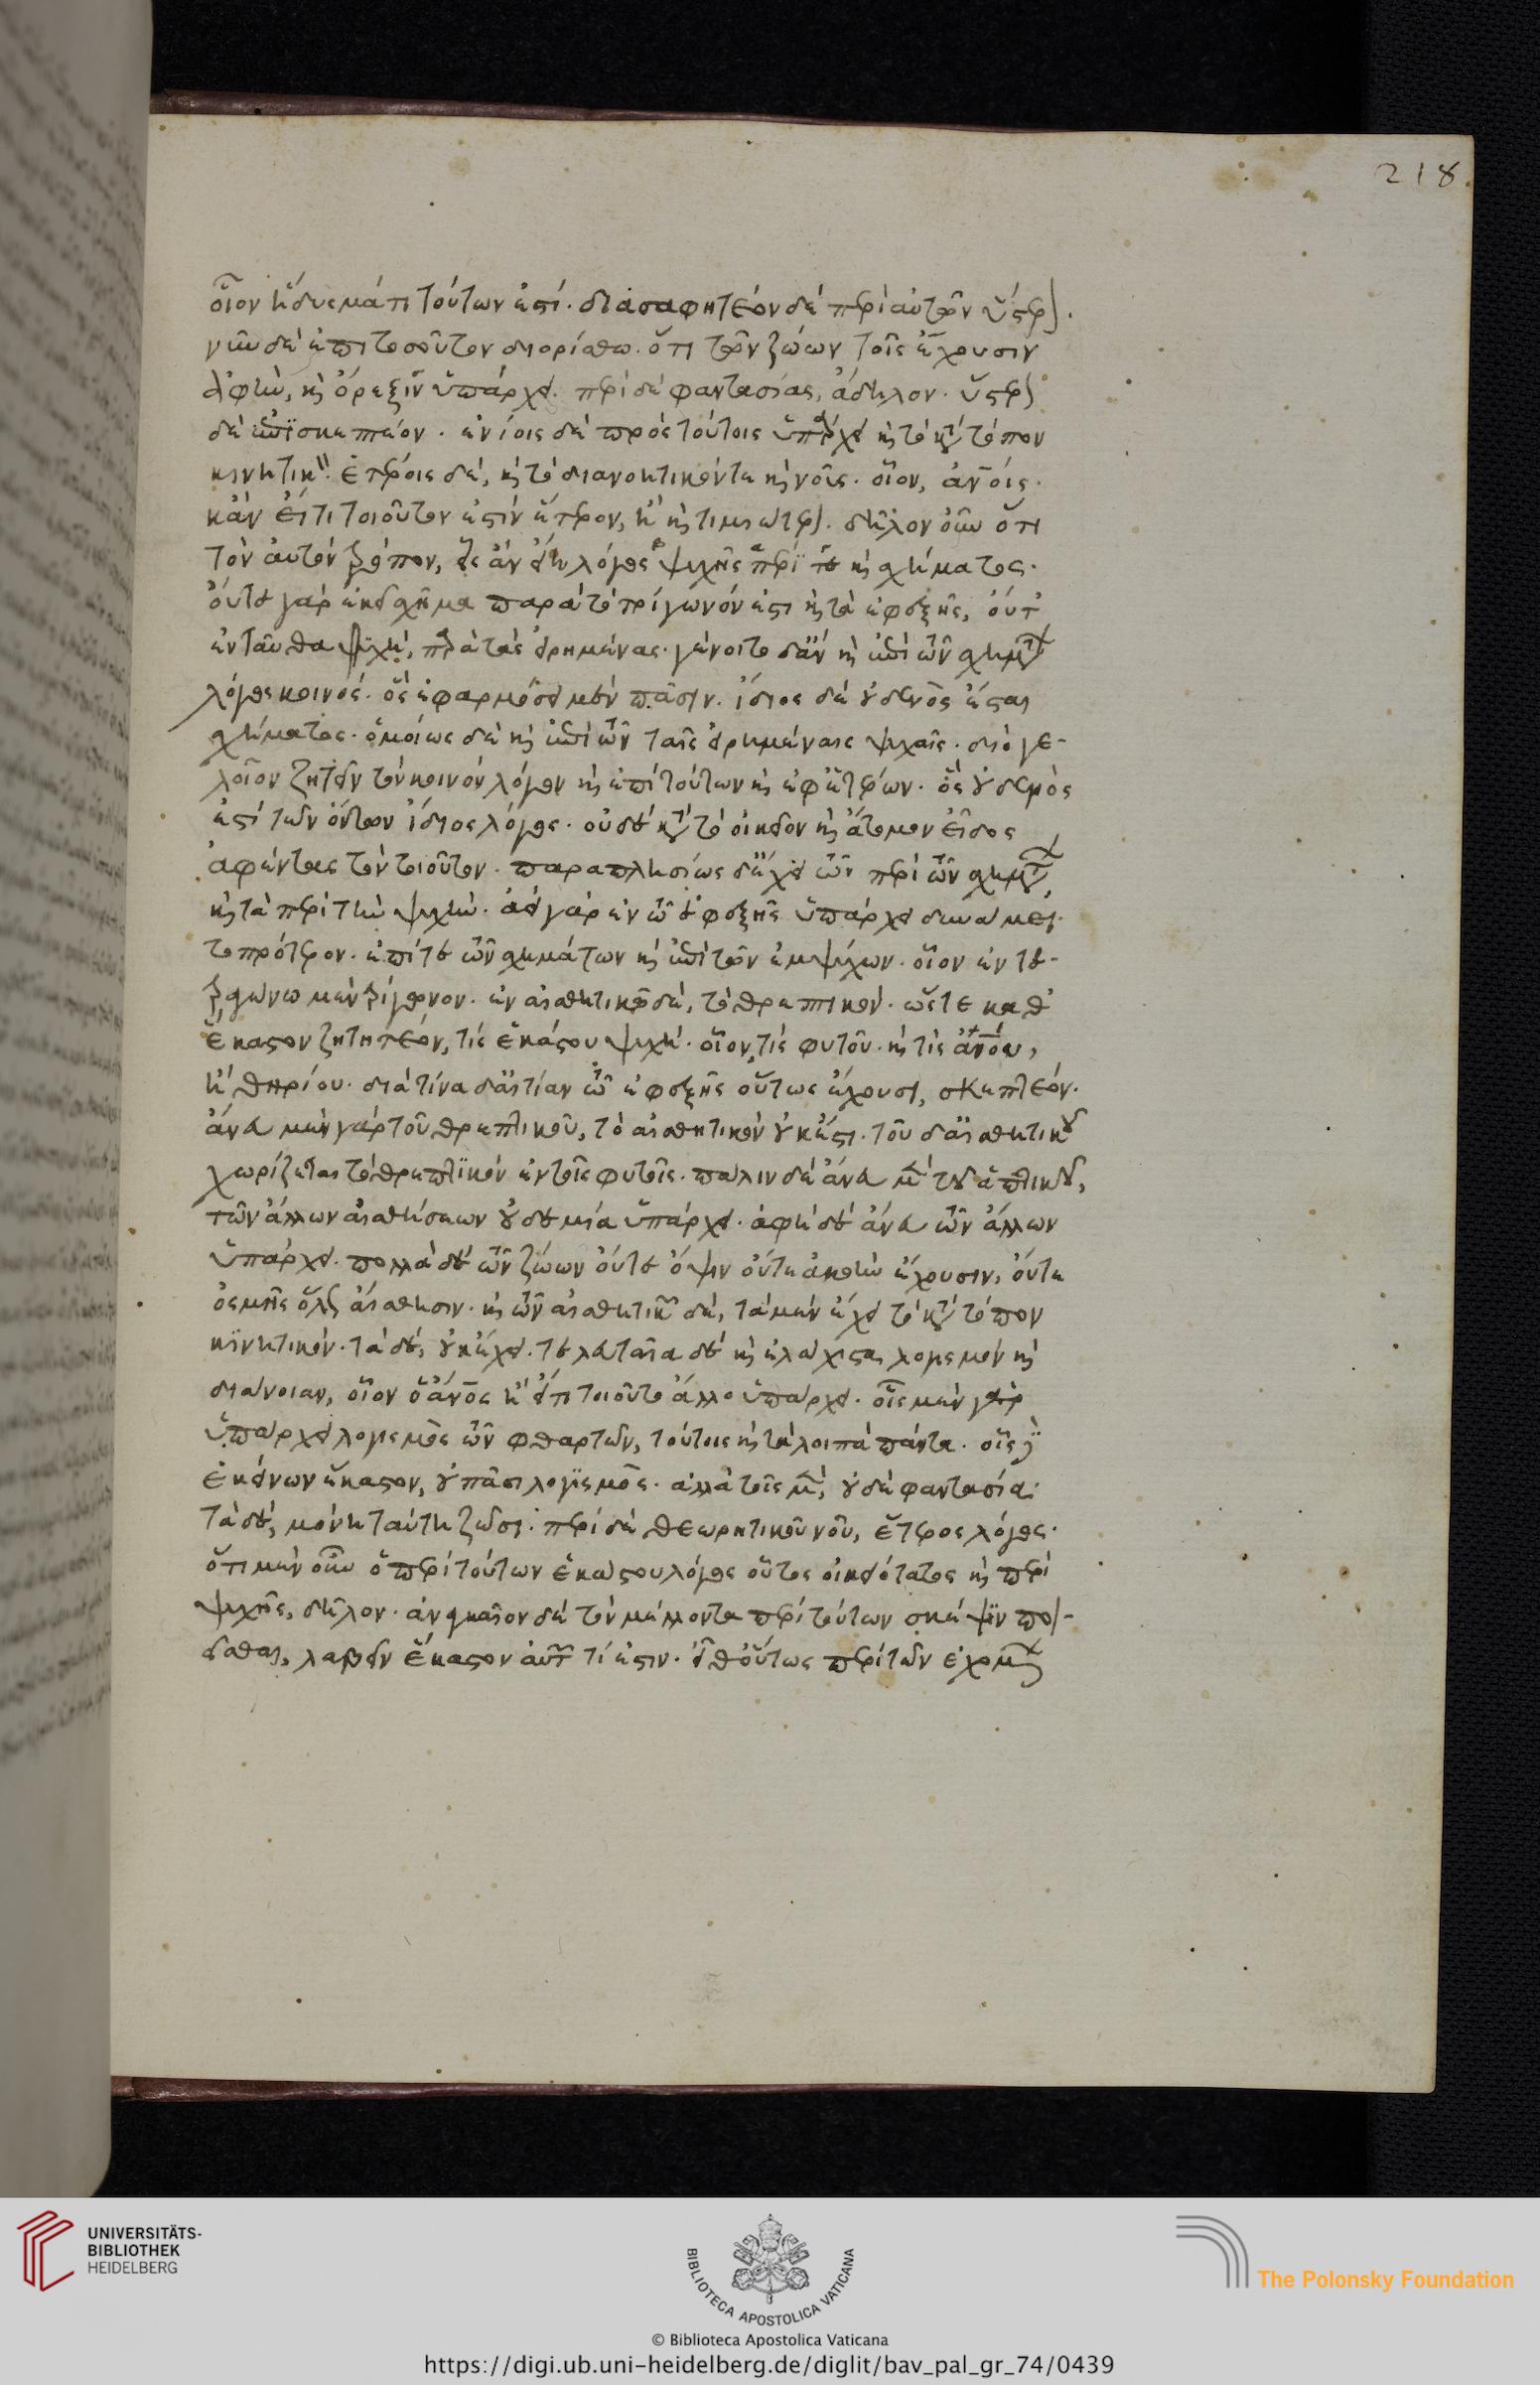 218
οἷον ἥδυσμά τι τούτων ἐστί. διασαφητέον δὲ περὶ αὐτῶν ὕστερον.
νῦν δὲ ἐπὶ τοσοῦτον διορίσθω. ὅτι τῶν ζώων τοῖς ἔχουσιν
ἁφὴν, καὶ ὄρεξιν ὑπάρχει. περὶ δὲ φαντασίας, ἄδηλον. ὕστερον
δὲ ἐπισκεπτέον. ἐνίοις δὲ πρὸς τούτοις ὑπάρχει καὶ τὸ κατὰ τόπον
κινητικὸν. ἑτέροις δὲ, καὶ τὸ διανοητικόν τε καὶ νοῦς. οἷον, ἀνοις.
κἂν εἴ τι τοιοῦτόν ἐστιν ἕτερον, ἢ καὶ τιμιώτερον. δῆλον οὖν ὅτι
τὸν αὐτὸν τρόπον, εἷς ἂν εἴη λόγος ψυχῆς περί τε καὶ σχήματος.
οὔτε γὰρ ἐκεῖ σχῆμα παρὰ τὸ τρίγωνόν ἐστι καὶ τὰ ἐφεξῆς, οὔτ'
ἐνταῦθα ψυχὴ, παρὰ τὰς εἰρημένας. γένοιτο δ' ἂν καὶ ἐπὶ τῶν σχημάτων
λόγος κοινός. ὃς ἐφαρμόσει μὲν πᾶσιν. ἴδιος δὲ οὐδενὸς ἔσται
σχήματος. ὁμοίως δὲ καὶ ἐπὶ τῶν ταῖς εἰρημέναις ψυχαῖς. διὸ γε-
λοῖον ζητεῖν τὸν κοινὸν λόγον καὶ ἐπὶ τούτων καὶ ἐφ' ἑτέρων. ὃς οὐδενὸς
ἐστὶ τῶν ὄντων ἴδιος λόγος. οὐδὲ κατὰ τὸ οἰκεῖον καὶ ἄτομον εἶδος
ἀφέντας τὸν τοιοῦτον. παραπλησίως δ' ἔχει τῶν περὶ τῶν σχημάτων,
καὶ τὰ περὶ τὴν ψυχήν. ἀεὶ γὰρ ἐν τῶ ἐφεξῆς ὑπάρχει δυνάμει.
το πρότερον. ἐπί τε τῶν σχημάτων καὶ ἐπὶ τῶν ἐμψύχων. οἷον ἐν τε-
τραγώνω μὲν τρίγωνον. ἐν αἰσθητικῶ δὲ, τὸ θρεπτικὸν. ὥστε καθ'
ἕκαστον ζητητέον, τίς ἑκάστου ψυχή. οἷον, τίς φυτοῦ. καὶ τίς ἀνου,
ἢ θηρίου. διὰ τίνα δ' αἰτίαν τῶ ἐφεξῆς οὕτως ἔχουσι, σκεπτέον.
ἄνευ μὲν γὰρ τοῦ θρεπτικοῦ, τὸ αἰσθητικὸν οὐκ ἔστι. τοῦ δ' αἰσθητικοῦ
χωρίζεται τὸ θρεπτικὸν ἐν τοῖς φυτοῖς. πάλιν δὲ ἄνευ μὲν τοῦ ἁπτικοῦ,
τῶν ἄλλων αἰσθήσεων οὐδὲ μία ὑπάρχει. ἁφὴ δὲ ἄνευ τῶν ἄλλων
ὑπάρχει. πολλὰ δὲ τῶν ζώων οὔτε ὄψιν οὔτε ἀκοὴν ἔχουσιν, οὔτε
ὀσμῆς ὅλως αἴσθησιν. καὶ τῶν αἰσθητικῶν δὲ, τὰ μὲν ἔχει τὸ κατὰ τόπον
κινητικὸν. τὰ δὲ, οὐκ ἔχει. τελευταῖα δὲ καὶ ἐλάχιστα λογισμὸν καὶ
διάνοιαν, οἷον ὁ ἄνος ἢ εἴ τι τοιοῦτο ἄλλο ὑπάρχει. οἷς μὲν γὰρ
ὑπάρχει λογισμὸς τῶν φθαρτῶν, τούτοις καὶ τὰ λοιπὰ πάντα. οἷς δ'
ἐκείνων ἕκαστον, οὐ πᾶσι λογισμὸς. ἀλλὰ τοῖς μὲν, οὐδὲ φαντασία.
τὰ δὲ, μόνη ταύτη ζῶσι. περὶ δὲ θεωρητικοῦ νοῦ, ἕτερος λόγος.
ὅτι μὲν οὖν ὁ περὶ τούτων ἑκάστου λόγος οὗτος οἰκειότατος καὶ περὶ
ψυχῆς, δῆλον. ἀναγκαῖον δὲ τὸν μέλλοντα περὶ τούτων σκέψιν ποι-
εῖσθαι, λαβεῖν ἕκαστον αὐτῶν τί ἐστιν. εἶθ' οὕτως περὶ τῶν ἐχομένων
UNIVERSITÄTS-
BIBLIOTHEK
HEIDELBERG
BIBLIOTECA APOSTOLICA VATICANA
The Polonsky Foundation
© Biblioteca Apostolica Vaticana
https://digi.ub.uni-heidelberg.de/diglit/bav_pal_gr_74/0439